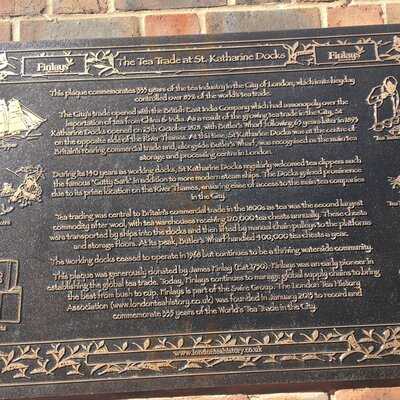 Finlays The Tea Trade at St. Katharine Docks Finlays
This plaque commemorates 355 years of the tea industry in the City of London, which in its heyday
controlled over 85% of the world's tea trade.
The City's trade opened with the British East India Company which had a monopoly over the
importation of tea from China & India. As a result of the growing tea trade in the City, St
Katharine Docks opened on 25th October 1828, with Butler's Wharf following 45 years later in 1873
on the opposite side of the River Thames. At this time, St Katharine Docks was at the centre of
Britain's roaring commercial trade and, alongside Butler's Wharf, was recognised as the main tea
storage and processing centre in London.
During its 140 years as working docks, St Katharine Docks regularly welcomed tea clippers such
the famous "Cutty Sark" in addition to more modern steam ships. The Docks gained prominence
due to its prime location on the River Thames, ensuring ease of access to the main tea companies
in the City.
Tea trading was central to Britain's commercial trade in the 1800s as tea was the second largest
commodity after wool, with tea warehouses receiving 120,000 tea chests annually. These chests
were transported by ships into the docks and then lifted by manual chain pulleys to the platforms
and storage floors. At its peak, Butler's Wharf handled 400,000 tea chests a year.
The working docks ceased to operate in 1968 but continues to be a thriving waterside community.
This plaque was generously donated by James Finlay (Est.1750). Finlays was an early pioneer in
establishing the global tea trade. Today, Finlays continues to manage global supply chains to bring
the best from bush to cup. Finlays is part of the Swire Group. The London Tea History
Association (www.londonteahistory.co.uk) was founded in January 2013 to record and
commemorate 355 years of the World's Tea Trade in the City.
www.londonteahistory.co.uk